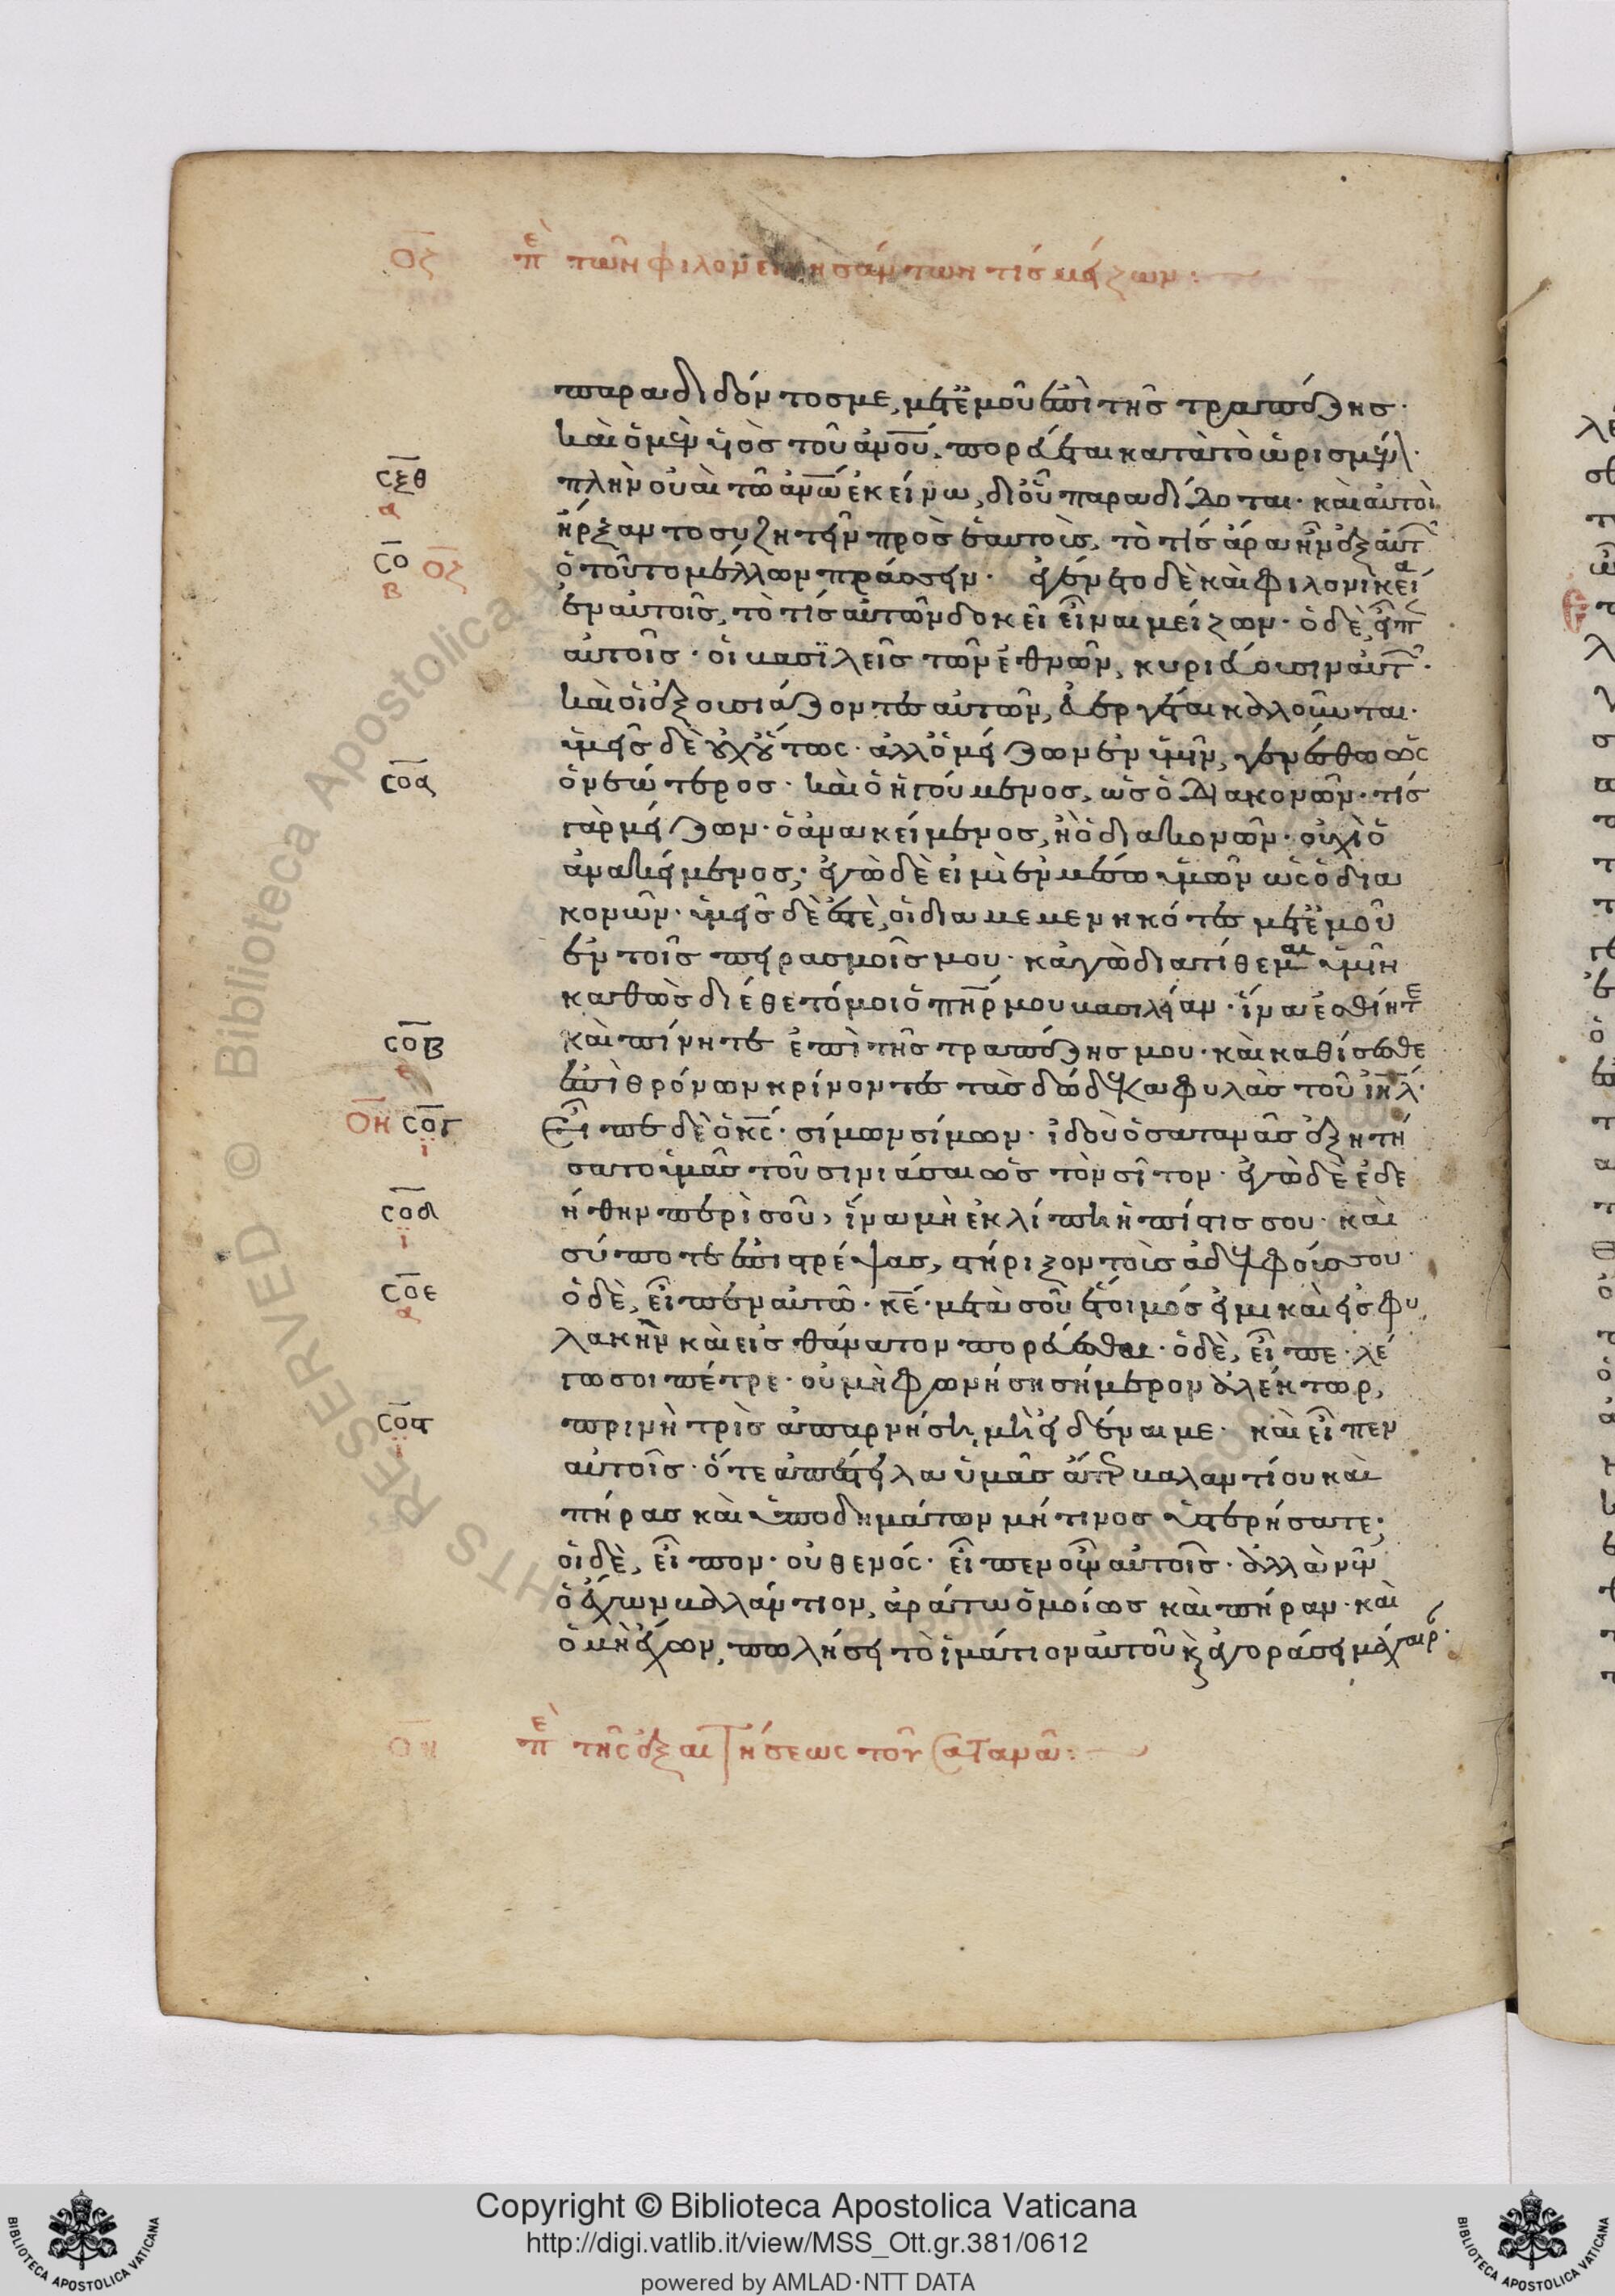 ος πε των φιλονεικησάντων τίς μείζων:
παραδιδόντος με, μετ ἐμοῦ ἐπὶ τῆς τραπέζης·
καὶ ὁ μὲν υἱὸς τοῦ ἀνου, πορεύεται κατὰ τὸ ὡρισμέν·
σξθ
α
πλὴν οὐαὶ τῶ ἀνω ἐκείνω, δι οὗ παραδίδοται· καὶ αὐτοὶ
ἤρξαντο συζητεῖν πρὸς ἑαυτοὺς, τὸ τίς ἄρα ἦν ἐξ αὐτ
σο
β
οζ
ὁ τοῦτο μέλλων πράσσειν· ἐγένετο δὲ καὶ φιλονικεία
ἐν αὐτοῖς, τὸ τίς αὐτῶν δοκεῖ εἶναι μείζων· ὁ δὲ, εἶπ
αὐτοῖς· οἱ βασϊλεῖς τῶν ἐθνῶν, κυριεύουσιν αὐτ·
καὶ οἱ ἐξουσιάζοντες αὐτῶν, εὐεργέται καλοῦνται·
ὑμεῖς δὲ οὐχ οὕτως· ἀλλ ὁ μείζων ἐν ὑμῖν, γενέσθω ὡς
σοα
ὁ νεώτερος· καὶ ὁ ἡγούμενος, ὡς ὁ διακονῶν· τίς
γὰρ μείζων· ὁ ἀνακείμενος, ἢ ὁ διακονῶν· οὐχὶ ὁ
ἀνακείμενος; ἐγὼ δὲ εἰμὶ ἐν μέσω ὑμῶν ὡς ὁ δια
κονῶν· ὑμεῖς δὲ ἐστὲ, οἱ διαμεμενηκότες μετ ἐμοῦ
ἐν τοῖς πειρασμοῖς μου· κἀγὼ διατίθεμαι ὑμῖν
καθὼς διέθετό μοι ὁ πηρ μου βασιλείαν· ἵνα ἐσθίητε
σοβ
ε
καὶ πίνητε ἐπὶ τῆς τραπέζης μου· καὶ καθίσεσθε
ἐπὶ θρόνων κρίνοντες τὰς δώδεκα φυλὰς τοῦ ιηλ·
ον σογ
ϊ
Εἶπε δὲ ὁ κς· σίμων σίμων· ἰδοὺ ὁ σατανᾶς ἐξητή
σατο ὑμᾶς τοῦ σινιάσαι ὡς τὸν σῖτον· ἐγὼ δὲ ἐδε
σοδ
ϊ
ήθην περὶ σοῦ, ἵνα μὴ ἐκλίπη ἡ πίστις σου· καὶ
σύ ποτε ἐπιστρέψας, στήριξον τοὺς ἀδελφούς σου·
σοε
α
ὁ δὲ, εἶπεν αὐτῶ· κε· μετὰ σοῦ ἕτοιμός εἰμι καὶ εἰς φυ
λακὴν καὶ εἰς θάνατον πορεύεσθαι· ὁ δὲ, εἶπε· λέ
γω σοι πέτρε· οὐ μὴ φωνήση σήμερον ἀλέκτωρ,
σος
ϊ
πρινὴ τρὶς ἀπαρνήση μὴ εἰδέναι με· καὶ εἶπεν
αὐτοῖς· ὅτε ἀπέστειλα ὑμᾶς ἄτερ βαλαντίου καὶ
πήρας καὶ ὑποδημάτων μή τινος ὑστερήσατε;
οἱ δὲ, εἶπον· οὐθενός· εἶπεν οὖν αὐτοῖς· ἀλλὰ νῦν
ὁ ἔχων βαλάντιον, ἀράτω ὁμοίως καὶ πήραν· καὶ
ὁ μὴ ἔχων, πωλήσει τὸ ἱμάτιον αὐτοῦ κ ἀγοράσει μάχαιρ·
ον πε τῆς ἐξαιτήσεως τοῦ Σατανᾶ:
Copyright © Biblioteca Apostolica Vaticana
http://digi.vatlib.it/view/MSS_Ott.gr.381/0612
powered by AMLAD·NTT DATA
BIBLIOTECA APOSTOLICA VATICANA
BIBLIOTECA APOSTOLICA VATICANA